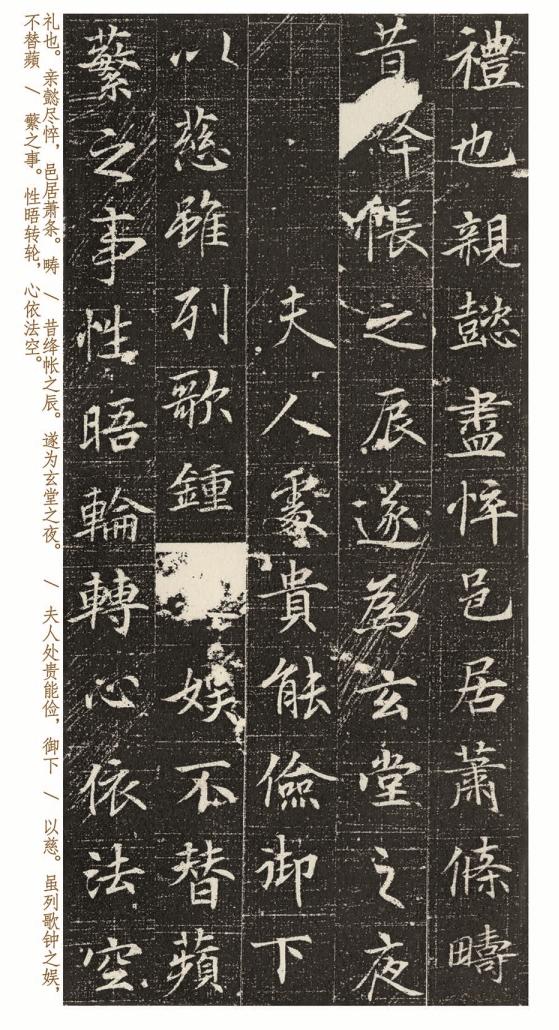 禮也親懿盡悴邑居蕭條疇
昔絳帳之辰遂為玄堂之夜
夫人處貴能儉御下
以慈雖列歌鍾娛不替蘋
蘩之事性晤輪轉心依法空
礼也。亲懿尽悴，邑居萧条。畴 / 昔绛帐之辰。遂为玄堂之夜。 / 夫人处贵能俭，御下 / 以慈。虽列歌钟之娱，
不替蘋 / 蘩之事。性晤转轮，心依法空。